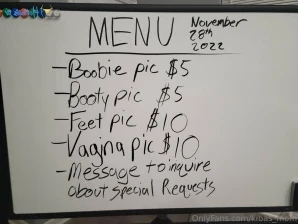 MENU
November
28th
2022
-Boobie pic $5
-Booty pic $5
-Feet pic $10
-Vagina pic $10
-Message to inquire
about special Requests